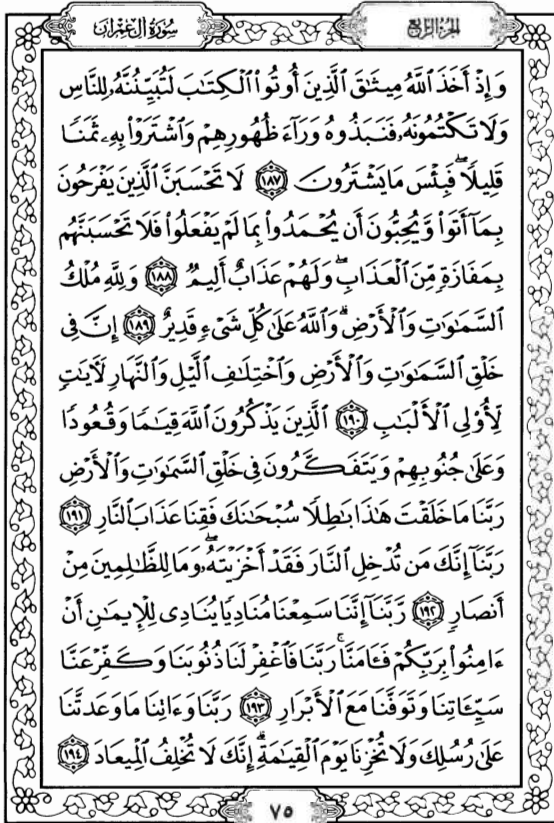 سُورَةُ آلِ عِمْرَانَ
الجُزْءُ الرَّابِعُ
وَإِذْ أَخَذَ ٱللَّهُ مِيثَٰقَ ٱلَّذِينَ أُوتُوا۟ ٱلْكِتَٰبَ لَتُبَيِّنُنَّهُۥ لِلنَّاسِ
وَلَا تَكْتُمُونَهُۥ فَنَبَذُوهُ وَرَآءَ ظُهُورِهِمْ وَٱشْتَرَوْا۟ بِهِۦ ثَمَنًا
قَلِيلًا ۖ فَبِئْسَ مَا يَشْتَرُونَ ١٨٧ لَا تَحْسَبَنَّ ٱلَّذِينَ يَفْرَحُونَ
بِمَآ أَتَوا۟ وَّيُحِبُّونَ أَن يُحْمَدُوا۟ بِمَا لَمْ يَفْعَلُوا۟ فَلَا تَحْسَبَنَّهُم
بِمَفَازَةٍ مِّنَ ٱلْعَذَابِ ۖ وَلَهُمْ عَذَابٌ أَلِيمٌ ١٨٨ وَلِلَّهِ مُلْكُ
ٱلسَّمَٰوَٰتِ وَٱلْأَرْضِ ۗ وَٱللَّهُ عَلَىٰ كُلِّ شَىْءٍ قَدِيرٌ ١٨٩ إِنَّ فِى
خَلْقِ ٱلسَّمَٰوَٰتِ وَٱلْأَرْضِ وَٱخْتِلَٰفِ ٱلَّيْلِ وَٱلنَّهَارِ لَـَٔايَٰتٍ
لِّأُو۟لِى ٱلْأَلْبَٰبِ ١٩٠ ٱلَّذِينَ يَذْكُرُونَ ٱللَّهَ قِيَٰمًا وَقُعُودًا
وَعَلَىٰ جُنُوبِهِمْ وَيَتَفَكَّرُونَ فِى خَلْقِ ٱلسَّمَٰوَٰتِ وَٱلْأَرْضِ
رَبَّنَا مَا خَلَقْتَ هَٰذَا بَٰطِلًا سُبْحَٰنَكَ فَقِنَا عَذَابَ ٱلنَّارِ ١٩١
رَبَّنَآ إِنَّكَ مَن تُدْخِلِ ٱلنَّارَ فَقَدْ أَخْزَيْتَهُۥ ۖ وَمَا لِلظَّٰلِمِينَ مِنْ
أَنصَارٍ ١٩٢ رَّبَّنَآ إِنَّنَا سَمِعْنَا مُنَادِيًا يُنَادِى لِلْإِيمَٰنِ أَنْ
ءَامِنُوا۟ بِرَبِّكُمْ فَـَٔامَنَّا ۚ رَبَّنَا فَٱغْفِرْ لَنَا ذُنُوبَنَا وَكَفِّرْ عَنَّا
سَيِّـَٔاتِنَا وَتَوَفَّنَا مَعَ ٱلْأَبْرَارِ ١٩٣ رَبَّنَا وَءَاتِنَا مَا وَعَدتَّنَا
عَلَىٰ رُسُلِكَ وَلَا تُخْزِنَا يَوْمَ ٱلْقِيَٰمَةِ ۗ إِنَّكَ لَا تُخْلِفُ ٱلْمِيعَادَ ١٩٤
٧٥